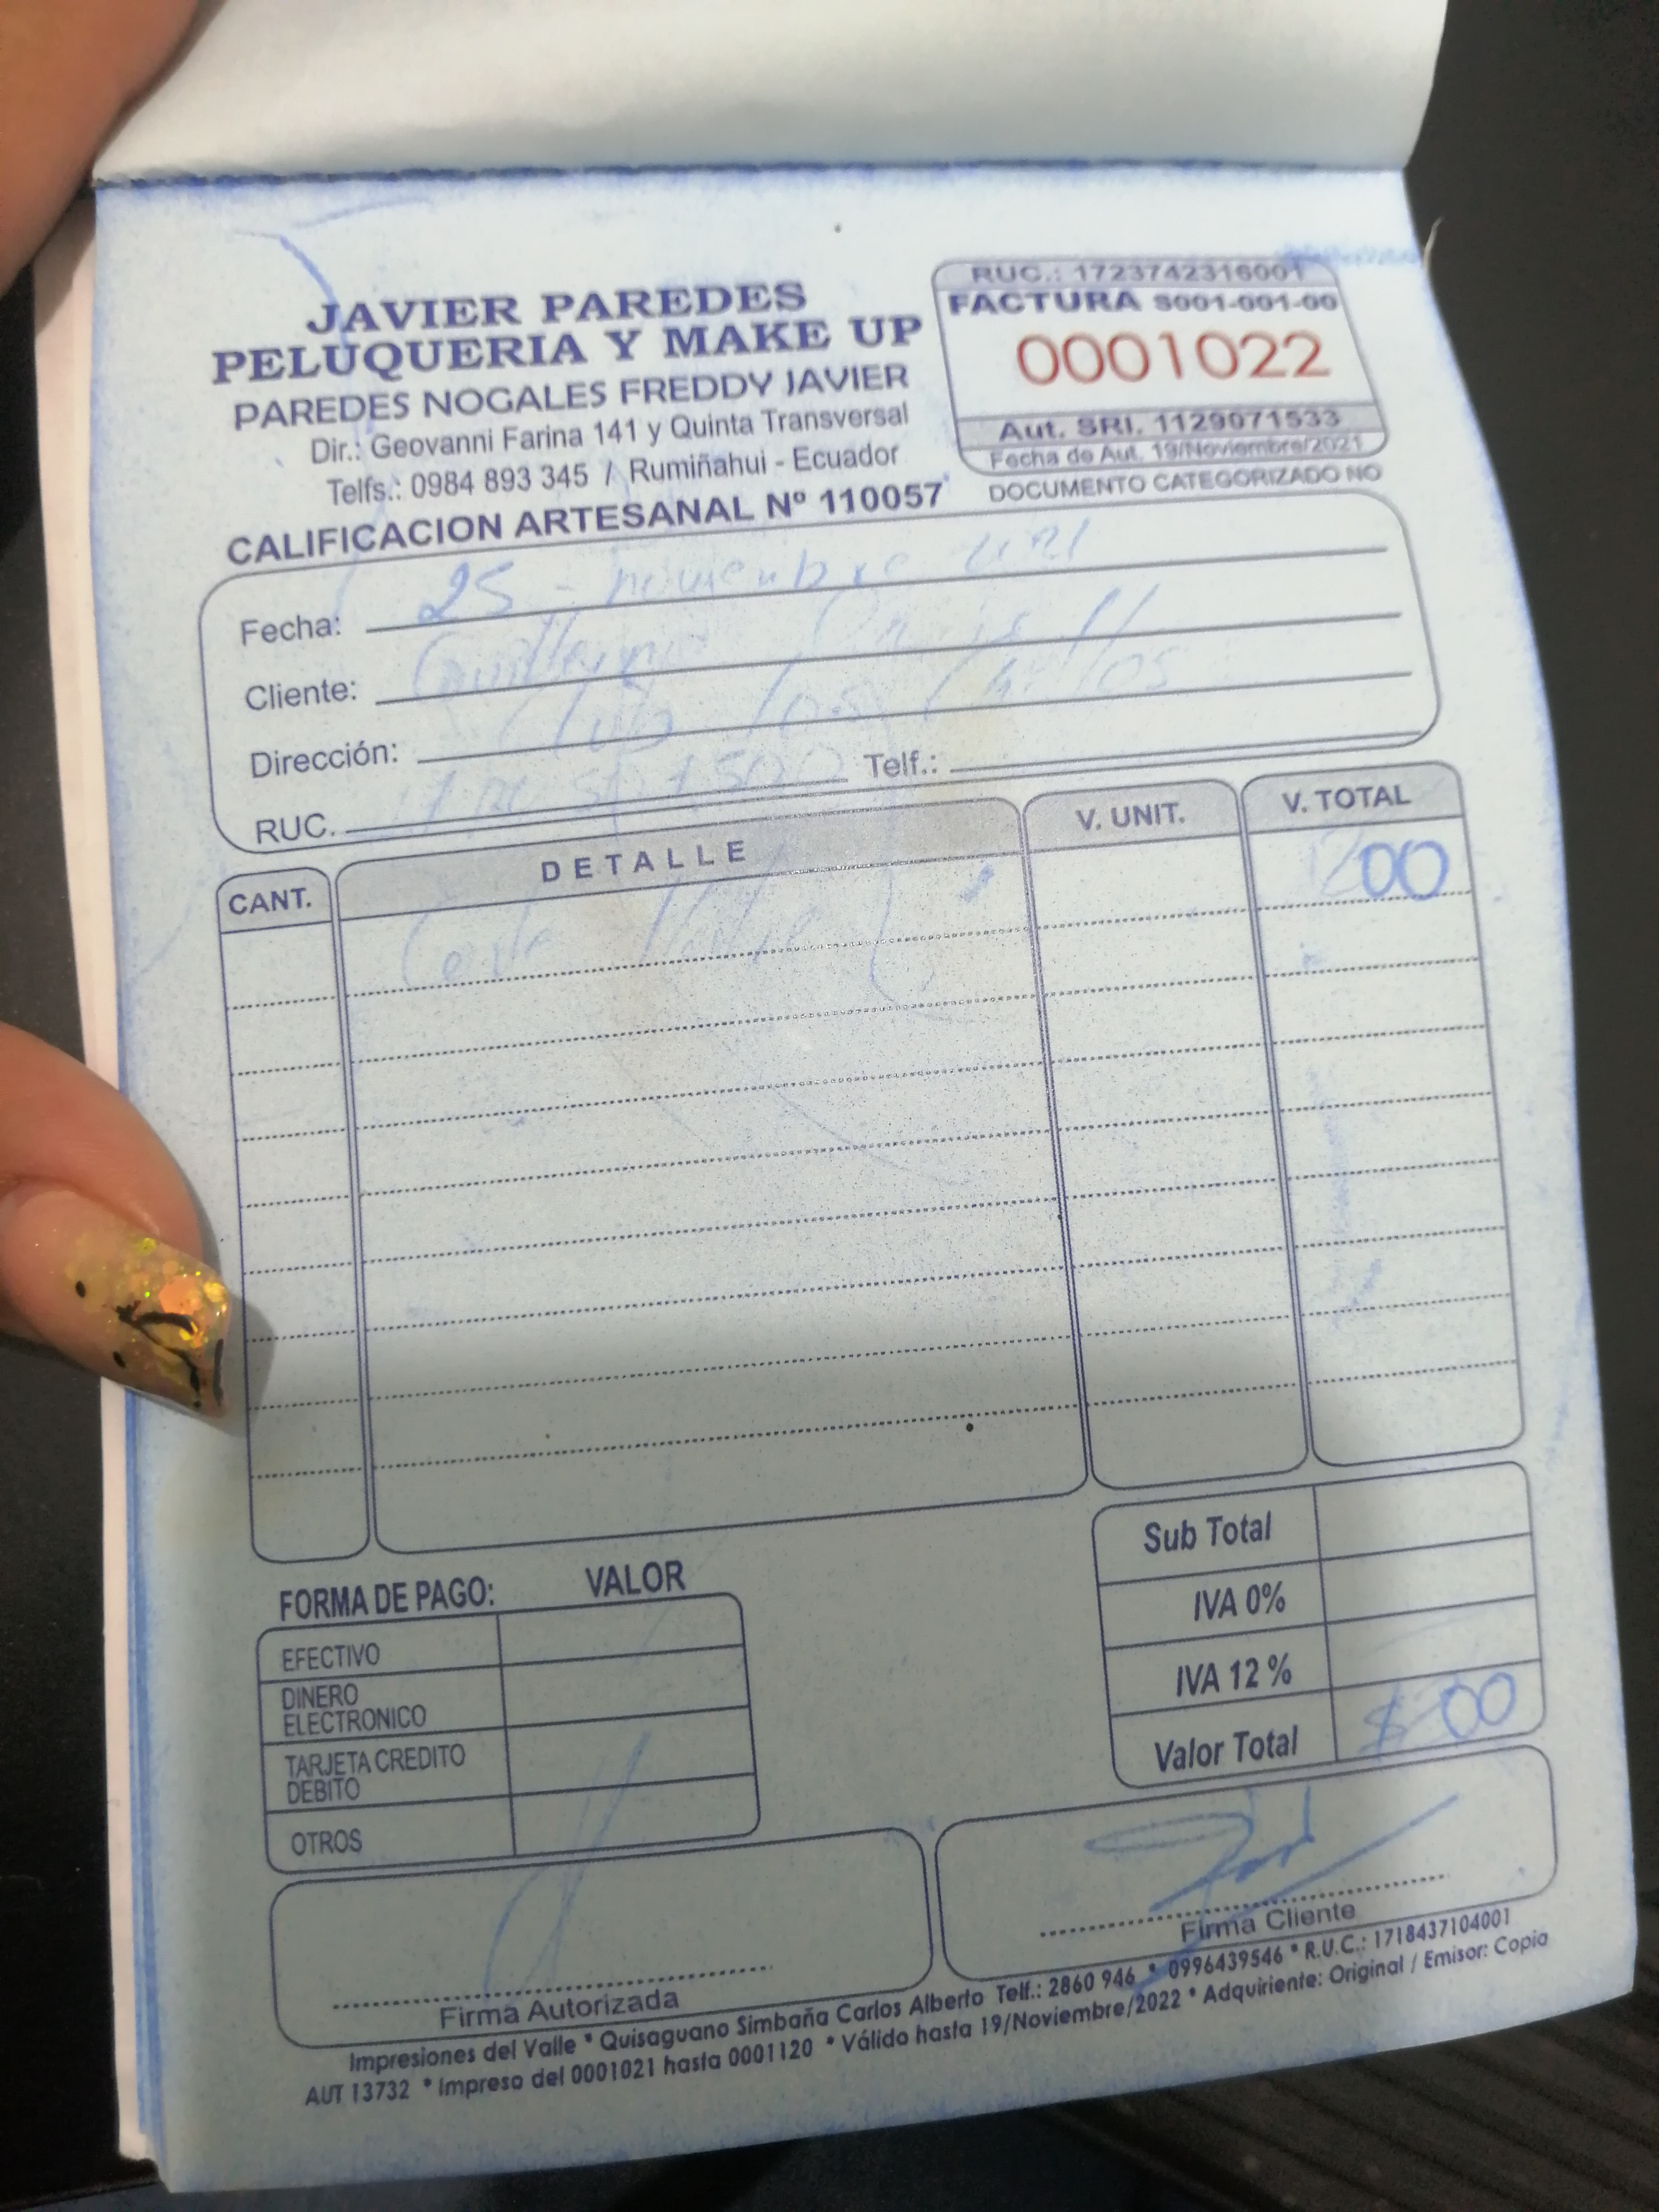 JAVIER PAREDES
PELUQUERIA Y MAKE UP
PAREDES NOGALES FREDDY JAVIER
Dir.: Geovanni Farina 141 y Quinta Transversal
Telfs.: 0984 893 345 / Rumiñahui - Ecuador
CALIFICACION ARTESANAL Nº 110057
RUC.: 1723742316001
FACTURA S001-001-00
0001022
Aut. SRI. 1129071533
Fecha de Aut. 19/Noviembre/2021
DOCUMENTO CATEGORIZADO NO
Fecha: 25 - noviembre
Cliente:
Dirección: Club los
RUC. Telf.:
CANT. DETALLE V. UNIT. V. TOTAL
00
Sub Total
IVA 0%
IVA 12 %
Valor Total $ 00
FORMA DE PAGO: VALOR
EFECTIVO
DINERO
ELECTRONICO
TARJETA CREDITO
DEBITO
OTROS
Firma Autorizada
Firma Cliente
Impresiones del Valle * Quisaguano Simbaña Carlos Alberto Telf.: 2860 946 * 0996439546 * R.U.C.: 1718437104001
AUT 13732 * Impreso del 0001021 hasta 0001120 * Válido hasta 19/Noviembre/2022 * Adquiriente: Original / Emisor: Copia